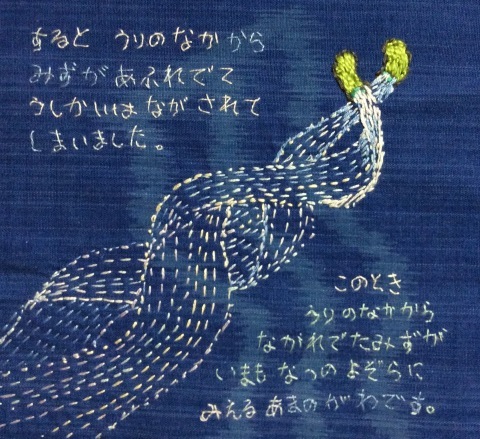 すると うりのなかから
みずがあふれでて
うしかいは ながされて
しまいました。
このとき
うりのなかから
ながれでたみずが
いまもなつのよぞらに
みえるあまのがわです。